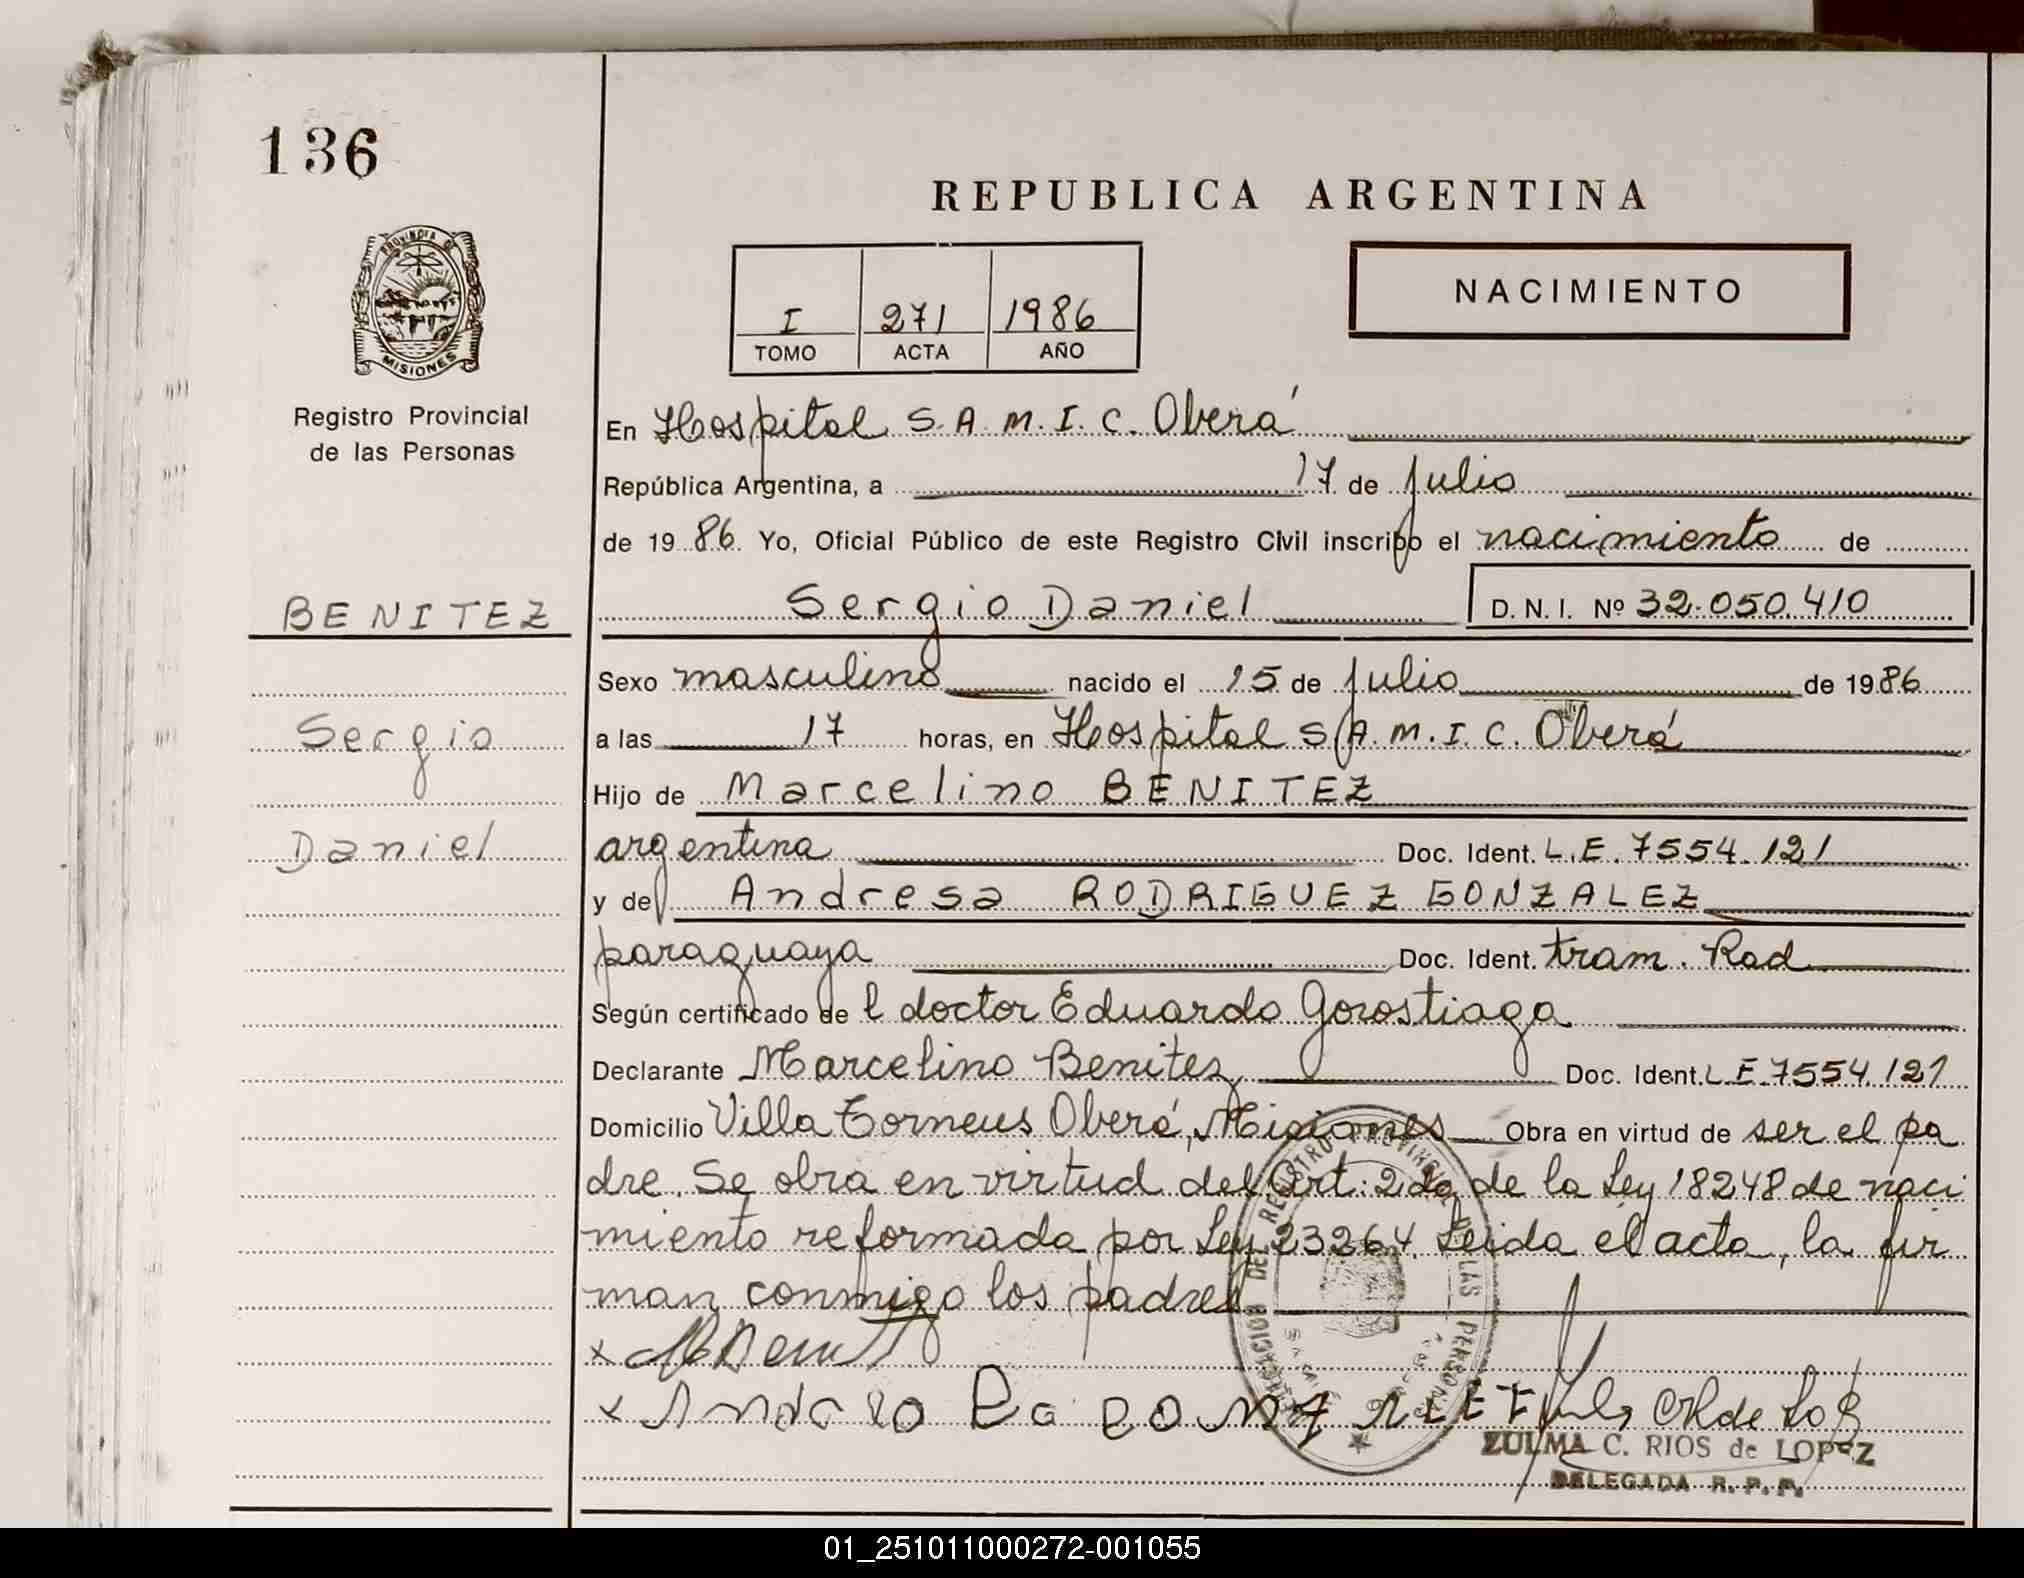 136
REPUBLICA ARGENTINA
PROVINCIA DE
MISIONES
Registro Provincial
de las Personas
I 271 1986
TOMO ACTA AÑO
NACIMIENTO
En Hospital S.A.M.I.C. Oberá
República Argentina, a 17 de julio
de 1986 Yo, Oficial Público de este Registro Civil inscribo el nacimiento de
BENITEZ
Sergio Daniel D.N.I. Nº 32.050.410
Sexo masculino nacido el 15 de julio de 1986
Sergio
a las 17 horas, en Hospital S.A.M.I.C. Oberá
Hijo de Marcelino BENITEZ
Daniel
argentina Doc. Ident. L.E. 7554.121
y de Andresa RODRIGUEZ GONZALEZ
paraguaya Doc. Ident. tram. Rad
Según certificado de l doctor Eduardo Gorostiaga
Declarante Marcelino Benitez Doc. Ident. L.E. 7554.121
Domicilio Villa Oberá, Misiones Obra en virtud de ser el pa
dre. Se obra en virtud del Art: 2 de la Ley 18248 de naci
miento reformada por Ley 23264. Leida el acta, la fir
man conmigo los padres
x
x
REGISTRO PROVINCIAL DE LAS PERSONAS
ZULMA C. RIOS de LOPEZ
DELEGADA R.P.P.
01_251011000272-001055